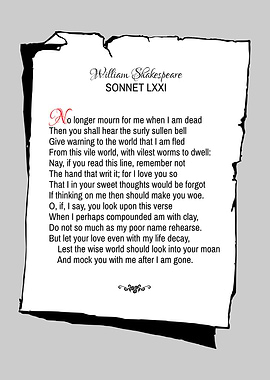 William Shakespeare
SONNET LXXI
No longer mourn for me when I am dead
Then you shall hear the surly sullen bell
Give warning to the world that I am fled
From this vile world, with vilest worms to dwell:
Nay, if you read this line, remember not
The hand that writ it; for I love you so
That I in your sweet thoughts would be forgot
If thinking on me then should make you woe.
O, if, I say, you look upon this verse
When I perhaps compounded am with clay,
Do not so much as my poor name rehearse.
But let your love even with my life decay,
Lest the wise world should look into your moan
And mock you with me after I am gone.